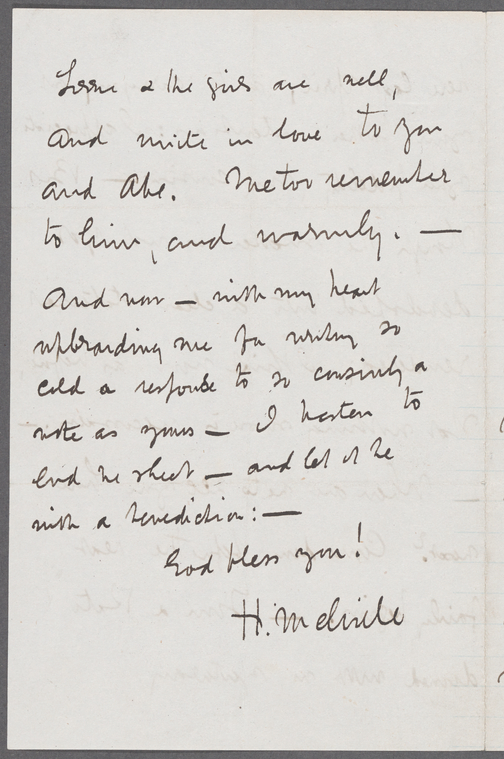 Lizzie & the girls are well,
and unite in love to you
and Abe. Me too remember
to him, and warmly. —
And now — with my heart
upbraiding me for writing so
cold a response to so cousinly a
note as yours — I hasten to
end the sheet — and let it be
with a benediction: —
God bless you!
H. Melville